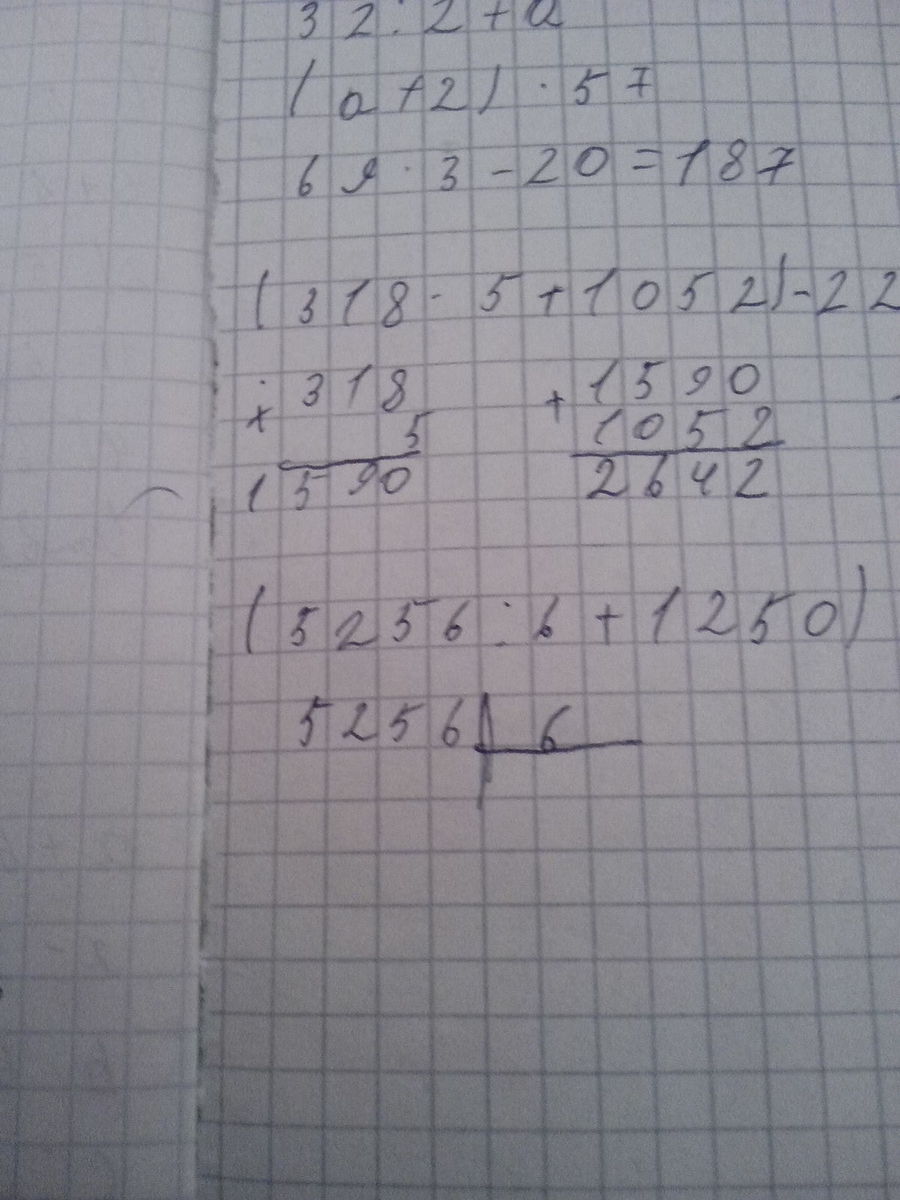 32:2+a
(a+2)·57
69·3-20=187
(318·5+1052)-22
× 318 + 1590
5 1052
1590 2642
(5256:6+1250)
5256 6